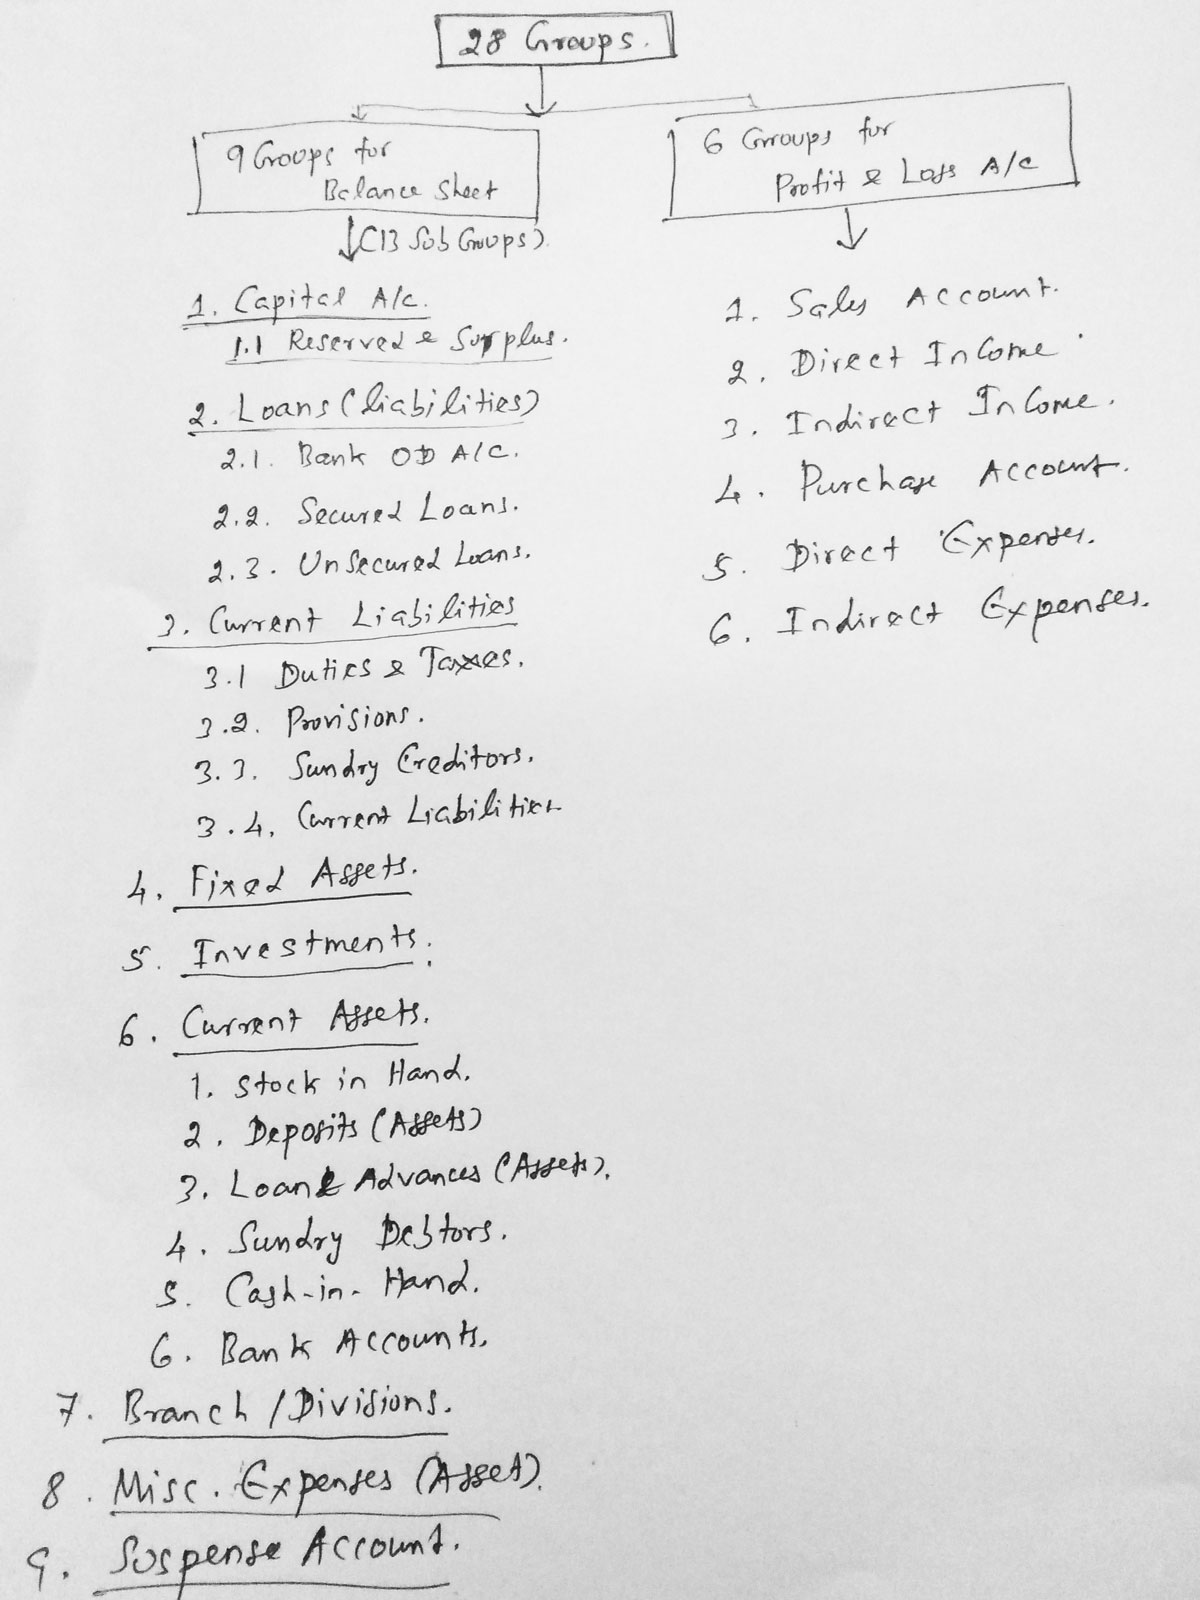 28 Groups.
9 Groups for
Balance Sheet
(13 Sub Groups).
1. Capital A/c.
1.1 Reserved & Surplus.
2. Loans (liabilities)
2.1. Bank OD A/C.
2.2. Secured Loans.
2.3. UnSecured Loans.
3. Current Liabilities
3.1 Duties & Taxes.
3.2. Provisions.
3.3. Sundry Creditors.
3.4. Current Liabilities
4. Fixed Assets.
5. Investments.
6. Current Assets.
1. Stock in Hand.
2. Deposits (Assets)
3. Loan & Advances (Assets).
4. Sundry Debtors.
5. Cash-in-Hand.
6. Bank Accounts.
7. Branch / Divisions.
8. Misc. Expenses (Asset).
9. Suspense Account.
6 Groups for
Profit & Loss A/c
1. Sales Account.
2. Direct InCome
3. Indirect InCome.
4. Purchase Account.
5. Direct Expenses.
6. Indirect Expenses.